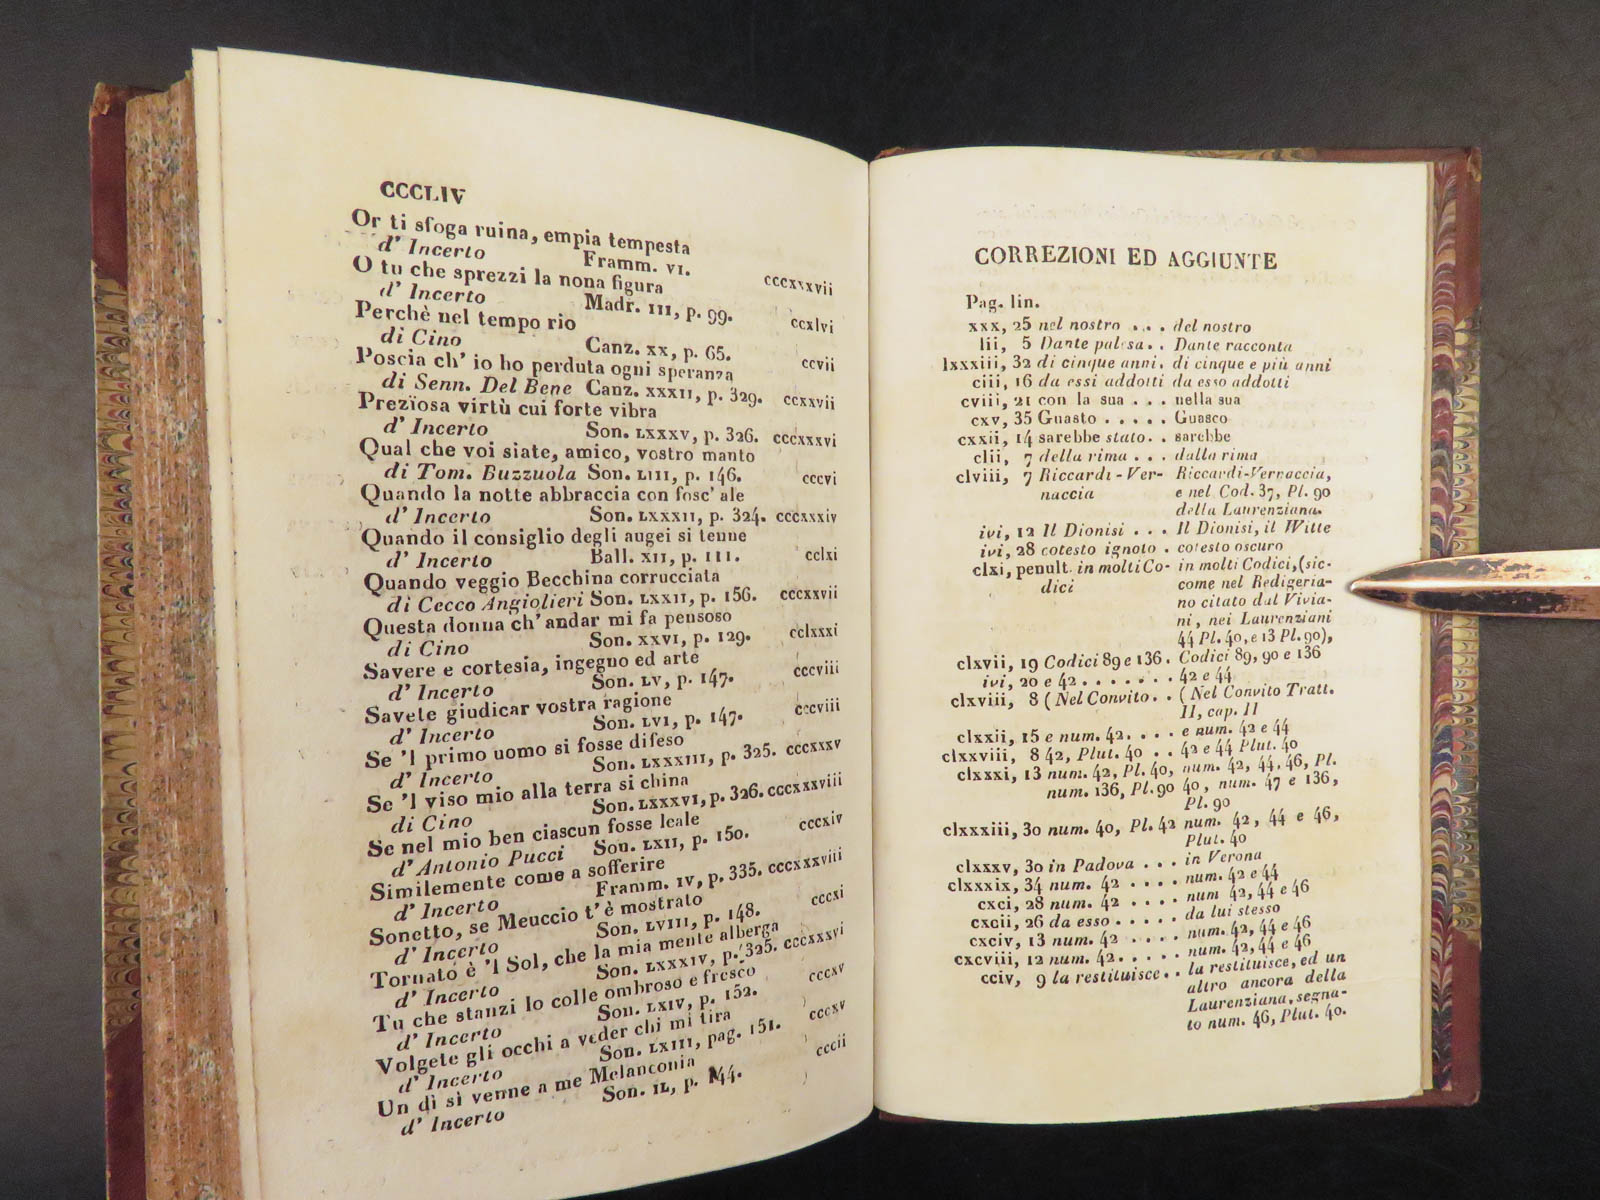 CCCLIV
Or ti sfoga ruina, empia tempesta
d' Incerto Framm. VI. cccxxxvii
O tu che sprezzi la nona figura
d' Incerto Madr. III, p. 99. ccxlvi
Perchè nel tempo rio
di Cino Canz. XX, p. 65. ccvii
Poscia ch' io ho perduta ogni speranza
di Senn. Del Bene Canz. XXXII, p. 329. ccxxvii
Prezïosa virtù cui forte vibra
d' Incerto Son. LXXXV, p. 326. cccxxxvi
Qual che voi siate, amico, vostro manto
di Tom. Buzzuola Son. LIII, p. 146. cccvi
Quando la notte abbraccia con fosc' ale
d' Incerto Son. LXXXII, p. 324. cccxxxiv
Quando il consiglio degli augei si tenne
d' Incerto Ball. XII, p. III. cclxi
Quando veggio Becchina corrucciata
di Cecco Angiolieri Son. LXXII, p. 156. cccxxvii
Questa donna ch' andar mi fa pensoso
di Cino Son. XXVI, p. 129. cclxxxi
Savere e cortesia, ingegno ed arte
d' Incerto Son. LV, p. 147. cccviii
Savete giudicar vostra ragione
d' Incerto Son. LVI, p. 147. cccviii
Se 'l primo uomo si fosse difeso
d' Incerto Son. LXXXIII, p. 325. cccxxxv
Se 'l viso mio alla terra si china
di Cino Son. LXXXVI, p. 326. cccxxxviii
Se nel mio ben ciascun fosse leale
d' Antonio Pucci Son. LXII, p. 150. cccxiv
Similemente come a sofferire
d' Incerto Framm. IV, p. 335. cccxxxviii
Sonetto, se Meuccio t'è mostrato
d' Incerto Son. LVIII, p. 148. cccxi
Tornato è 'l Sol, che la mia mente alberga
d' Incerto Son. LXXXIV, p. 325. cccxxxvi
Tu che stanzi lo colle ombroso e fresco
d' Incerto Son. LXIV, p. 152. cccxv
Volgete gli occhi a veder chi mi tira
d' Incerto Son. LXIII, pag. 151. cccxv
Un dì si venne a me Melanconia
d' Incerto Son. IL, p. 144. cccii
CORREZIONI ED AGGIUNTE
Pag. lin.
xxx, 25 nel nostro . . . del nostro
lii, 5 Dante palesa. . Dante racconta
lxxxiii, 32 di cinque anni. di cinque e più anni
ciii, 16 da essi addotti da esso addotti
cviii, 21 con la sua . . . nella sua
cxv, 35 Guasto . . . . . Guasco
cxxii, 14 sarebbe stato. . sarebbe
clii, 7 della rima . . . dalla rima
clviii, 7 Riccardi-Ver- Riccardi-Vernaccia,
naccia e nel Cod. 37, Pl. 90
della Laurenziana.
ivi, 12 Il Dionisi . . . Il Dionisi, il Witte
ivi, 28 cotesto ignoto . cotesto oscuro
clxi, penult. in molti Co- in molti Codici, (sic-
dici come nel Redigeria-
no citato dal Vivia-
ni, nei Laurenziani
44 Pl. 40, e 13 Pl. 90),
clxvii, 19 Codici 89 e 136. Codici 89, 90 e 136
ivi, 20 e 42 . . . . . . . 42 e 44
clxviii, 8 (Nel Convito. . (Nel Convito Tratt.
II, cap. II
clxxii, 15 e num. 42. . . . e num. 42 e 44
clxxviii, 8 42, Plut. 40 . . 42 e 44 Plut. 40
clxxxi, 13 num. 42, Pl. 40, num. 42, 44, 46, Pl.
num. 136, Pl. 90 40, num. 47 e 136,
Pl. 90
clxxxiii, 30 num. 40, Pl. 42 num. 42, 44 e 46,
Plut. 40
clxxxv, 30 in Padova . . . in Verona
clxxxix, 34 num. 42 . . . . num. 42 e 44
cxci, 28 num. 42 . . . . num 42, 44 e 46
cxcii, 26 da esso . . . . . da lui stesso
cxciv, 13 num. 42 . . . . num. 42, 44 e 46
cxcviii, 12 num. 42. . . . . num. 42, 44 e 46
cciv, 9 la restituisce. . la restituisce, ed un
altro ancora della
Laurenziana, segna-
to num. 46, Plut. 40.